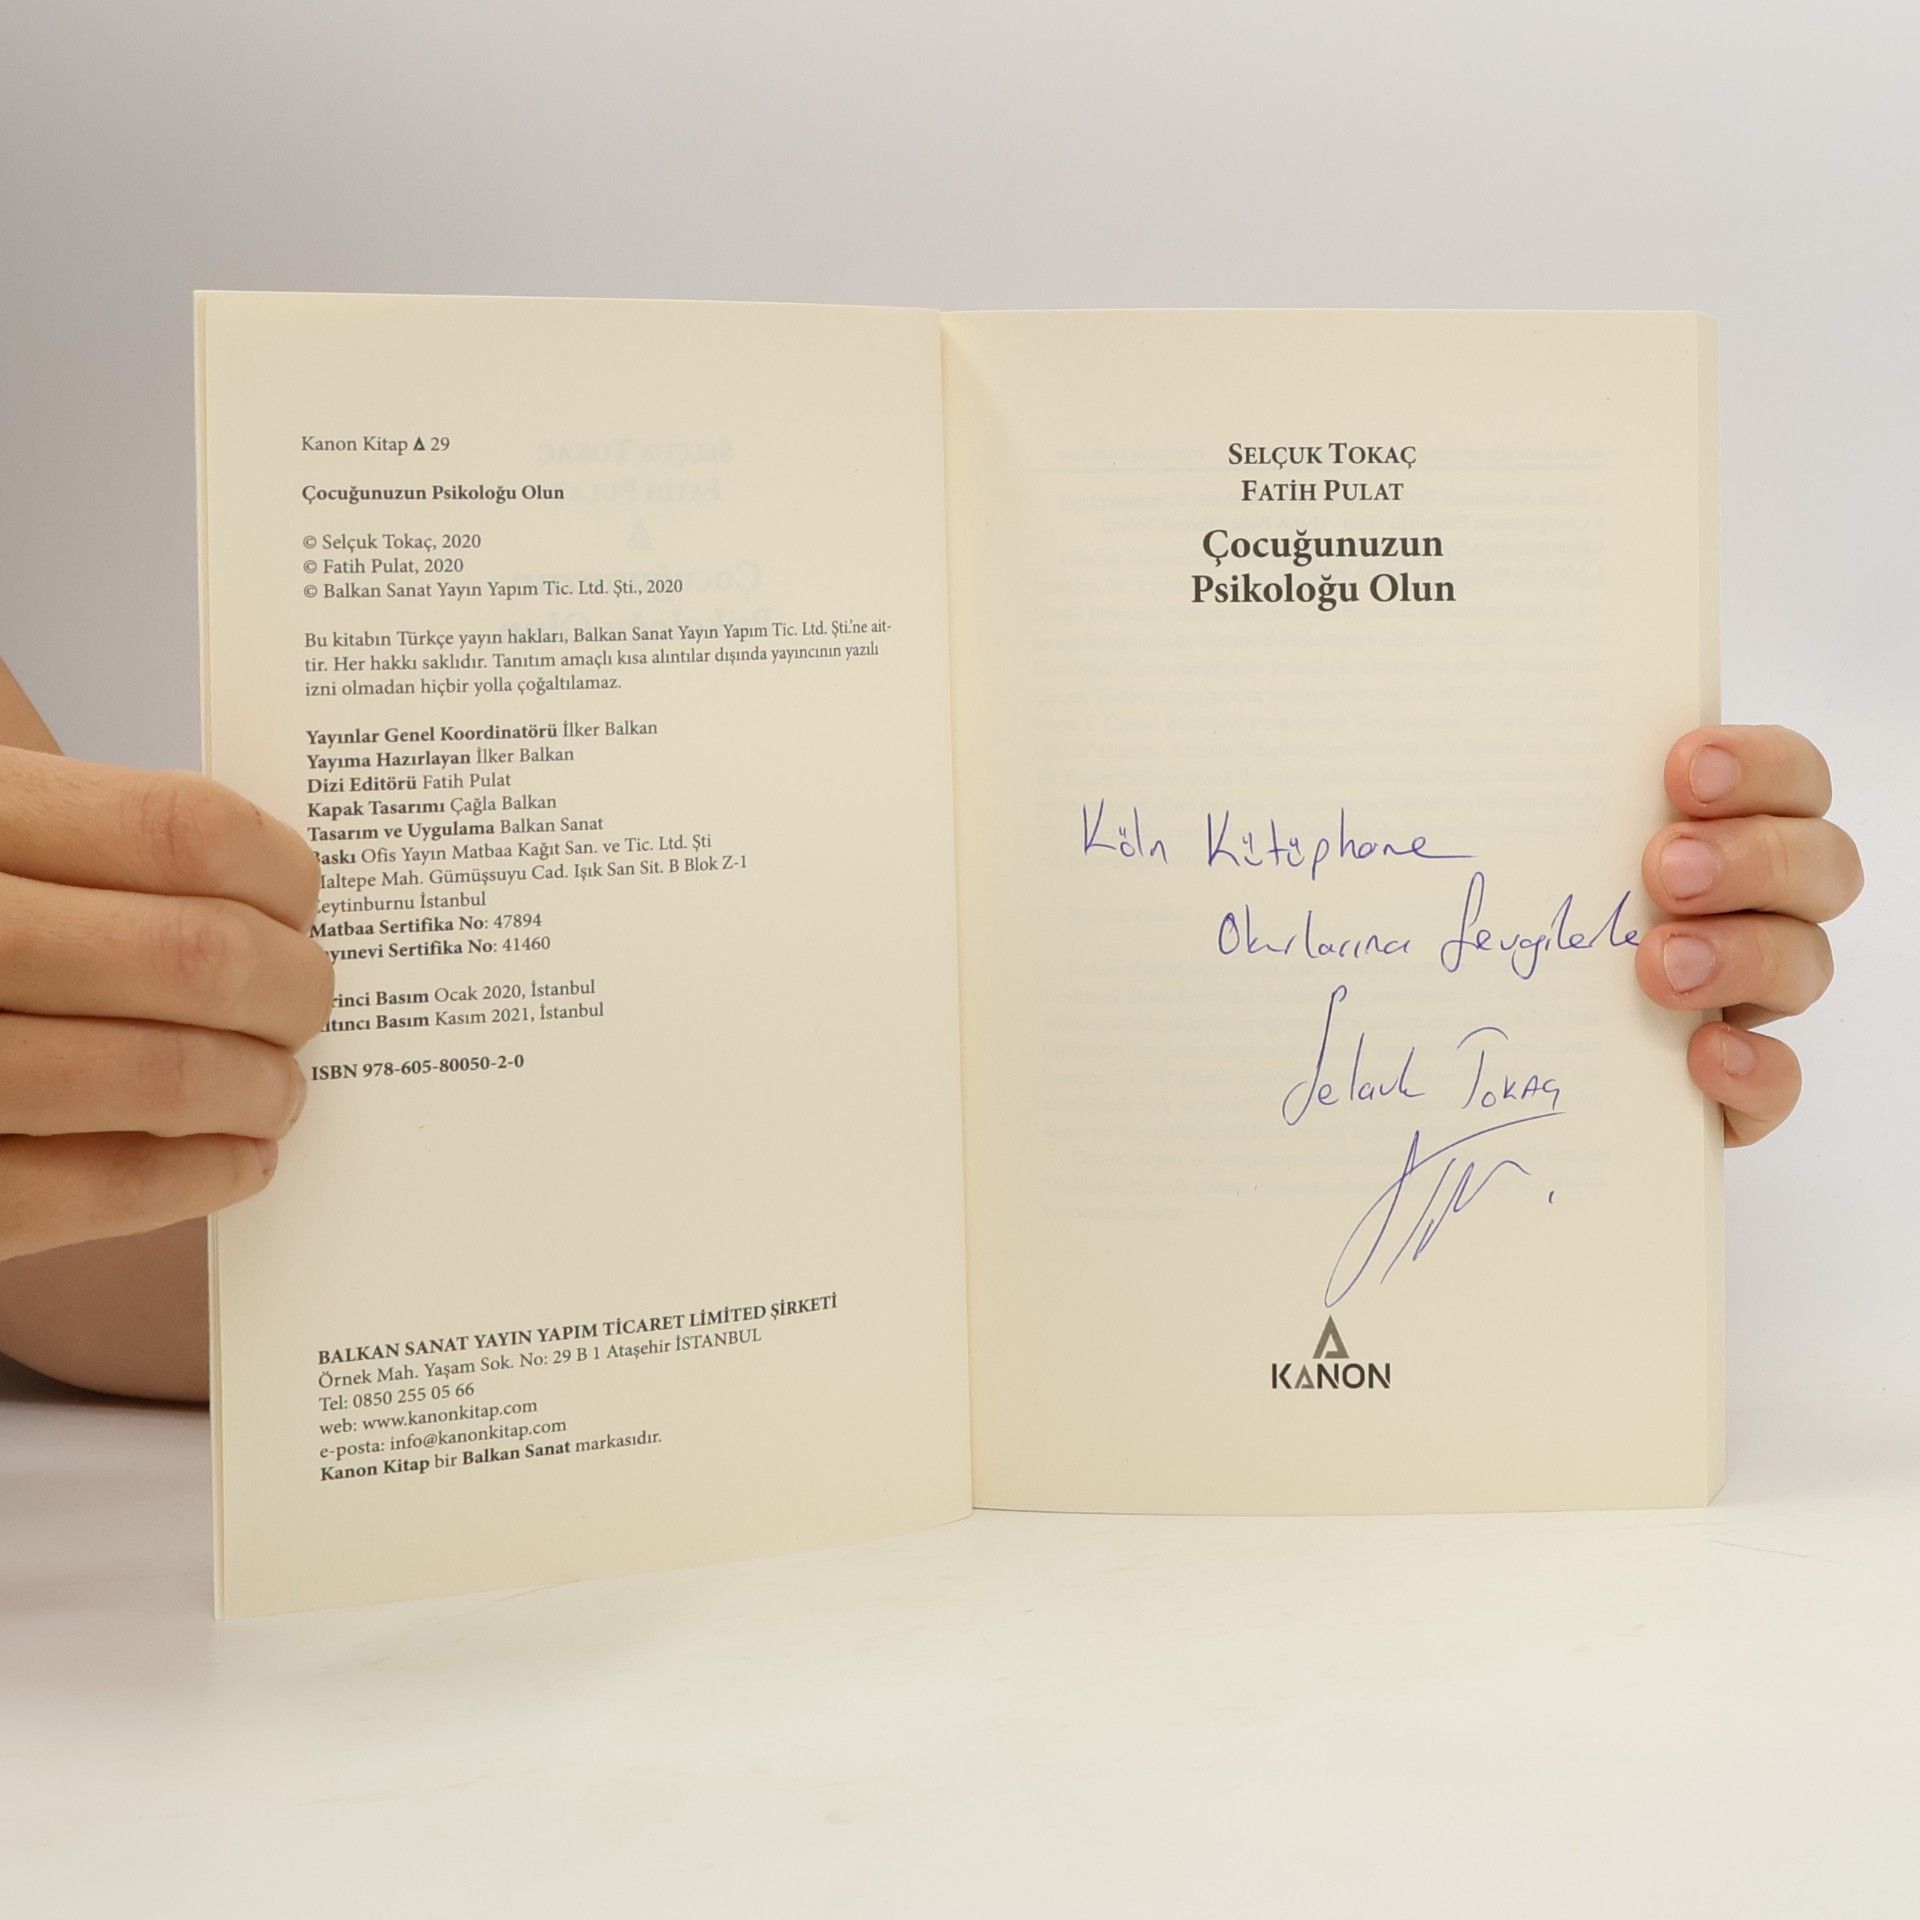 Kanon Kitap 29
Çocuğunuzun Psikoloğu Olun
© Selçuk Tokaç, 2020
© Fatih Pulat, 2020
© Balkan Sanat Yayın Yapım Tic. Ltd. Şti., 2020
Bu kitabın Türkçe yayın hakları, Balkan Sanat Yayın Yapım Tic. Ltd. Şti.'ne ait-
tir. Her hakkı saklıdır. Tanıtım amaçlı kısa alıntılar dışında yayıncının yazılı
izni olmadan hiçbir yolla çoğaltılamaz.
Yayınlar Genel Koordinatörü İlker Balkan
Yayıma Hazırlayan İlker Balkan
Dizi Editörü Fatih Pulat
Kapak Tasarımı Çağla Balkan
Tasarım ve Uygulama Balkan Sanat
Baskı Ofis Yayın Matbaa Kağıt San. ve Tic. Ltd. Şti
Maltepe Mah. Gümüşsuyu Cad. Işık San Sit. B Blok Z-1
Zeytinburnu İstanbul
Matbaa Sertifika No: 47894
Yayınevi Sertifika No: 41460
Birinci Basım Ocak 2020, İstanbul
Basım Kasım 2021, İstanbul
ISBN 978-605-80050-2-0
BALKAN SANAT YAYIN YAPIM TİCARET LİMİTED ŞİRKETİ
Örnek Mah. Yaşam Sok. No: 29 B 1 Ataşehir İSTANBUL
Tel: 0850 255 05 66
web: www.kanonkitap.com
e-posta: info@kanonkitap.com
Kanon Kitap bir Balkan Sanat markasıdır.
SELÇUK TOKAÇ
FATİH PULAT
Çocuğunuzun
Psikoloğu Olun
Köln Kütüphane
Okurlarına Sevgilerle
Selçuk TOKAÇ
KANON